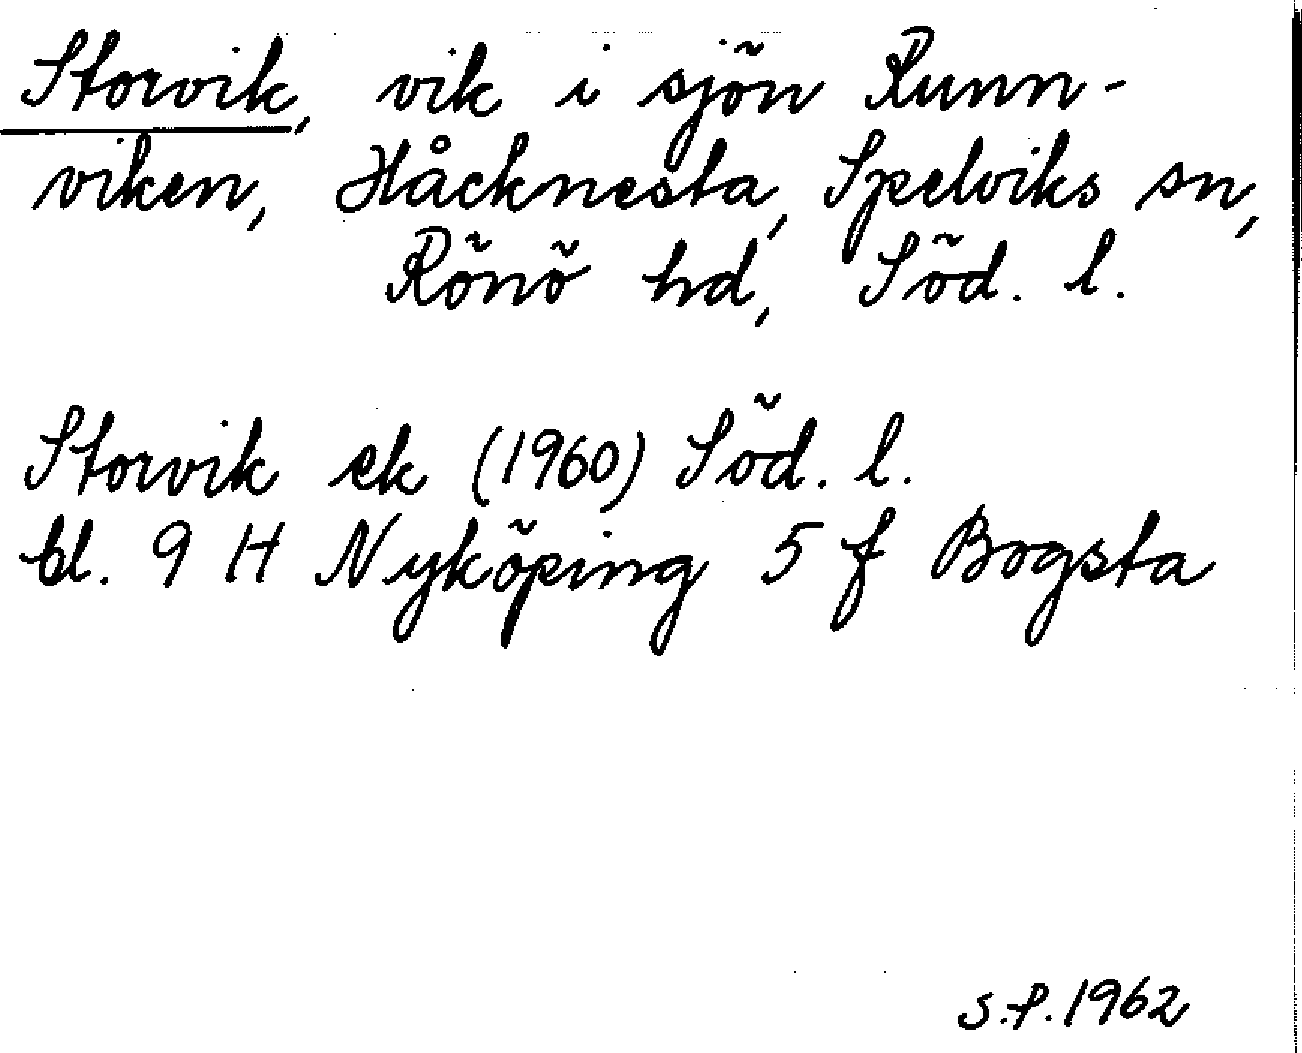 Storvik, vik i sjön Runn-
viken, Håcknesta, Spelviks sn,
Rönö hd, Söd. l.
Storvik ek (1960) Söd. l.
bl. 9 H Nyköping 5 f Bogsta
S.P. 1962